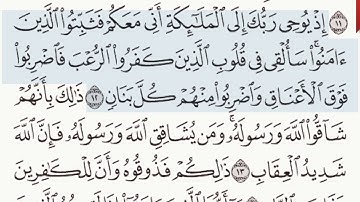 ١١ إِذْ يُوحِى رَبُّكَ إِلَى ٱلْمَلَـٰٓئِكَةِ أَنِّى مَعَكُمْ فَثَبِّتُوا۟ ٱلَّذِينَ
ءَامَنُوا۟ ۚ سَأُلْقِى فِى قُلُوبِ ٱلَّذِينَ كَفَرُوا۟ ٱلرُّعْبَ فَٱضْرِبُوا۟
فَوْقَ ٱلْأَعْنَاقِ وَٱضْرِبُوا۟ مِنْهُمْ كُلَّ بَنَانٍ ١٢ ذَٰلِكَ بِأَنَّهُمْ
شَآقُّوا۟ ٱللَّهَ وَرَسُولَهُۥ ۚ وَمَن يُشَاقِقِ ٱللَّهَ وَرَسُولَهُۥ فَإِنَّ ٱللَّهَ
شَدِيدُ ٱلْعِقَابِ ١٣ ذَٰلِكُمْ فَذُوقُوهُ وَأَنَّ لِلْكَـٰفِرِينَ